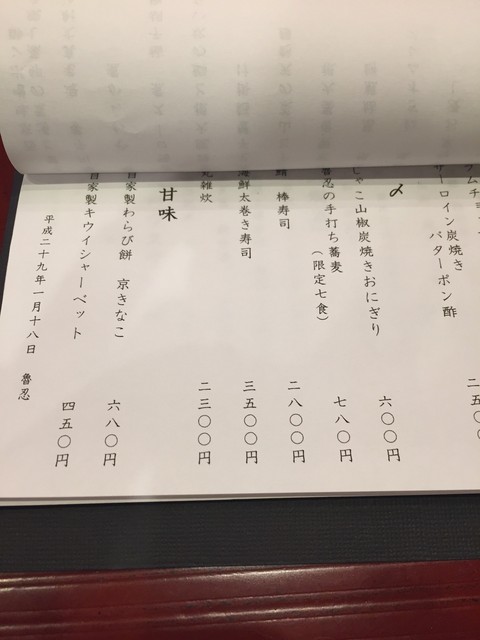 サーロイン炭焼き
バターポン酢
〆
じゃこ山椒炭焼きおにぎり 六〇〇円
魯忍の手打ち蕎麦 (限定七食) 七八〇円
鯖 棒寿司 二八〇〇円
海鮮太巻き寿司 三五〇〇円
雑炊 二三〇〇円
甘味
自家製わらび餅 京きなこ 六八〇円
自家製キウイシャーベット 四五〇円
平成二十九年一月十八日 魯忍